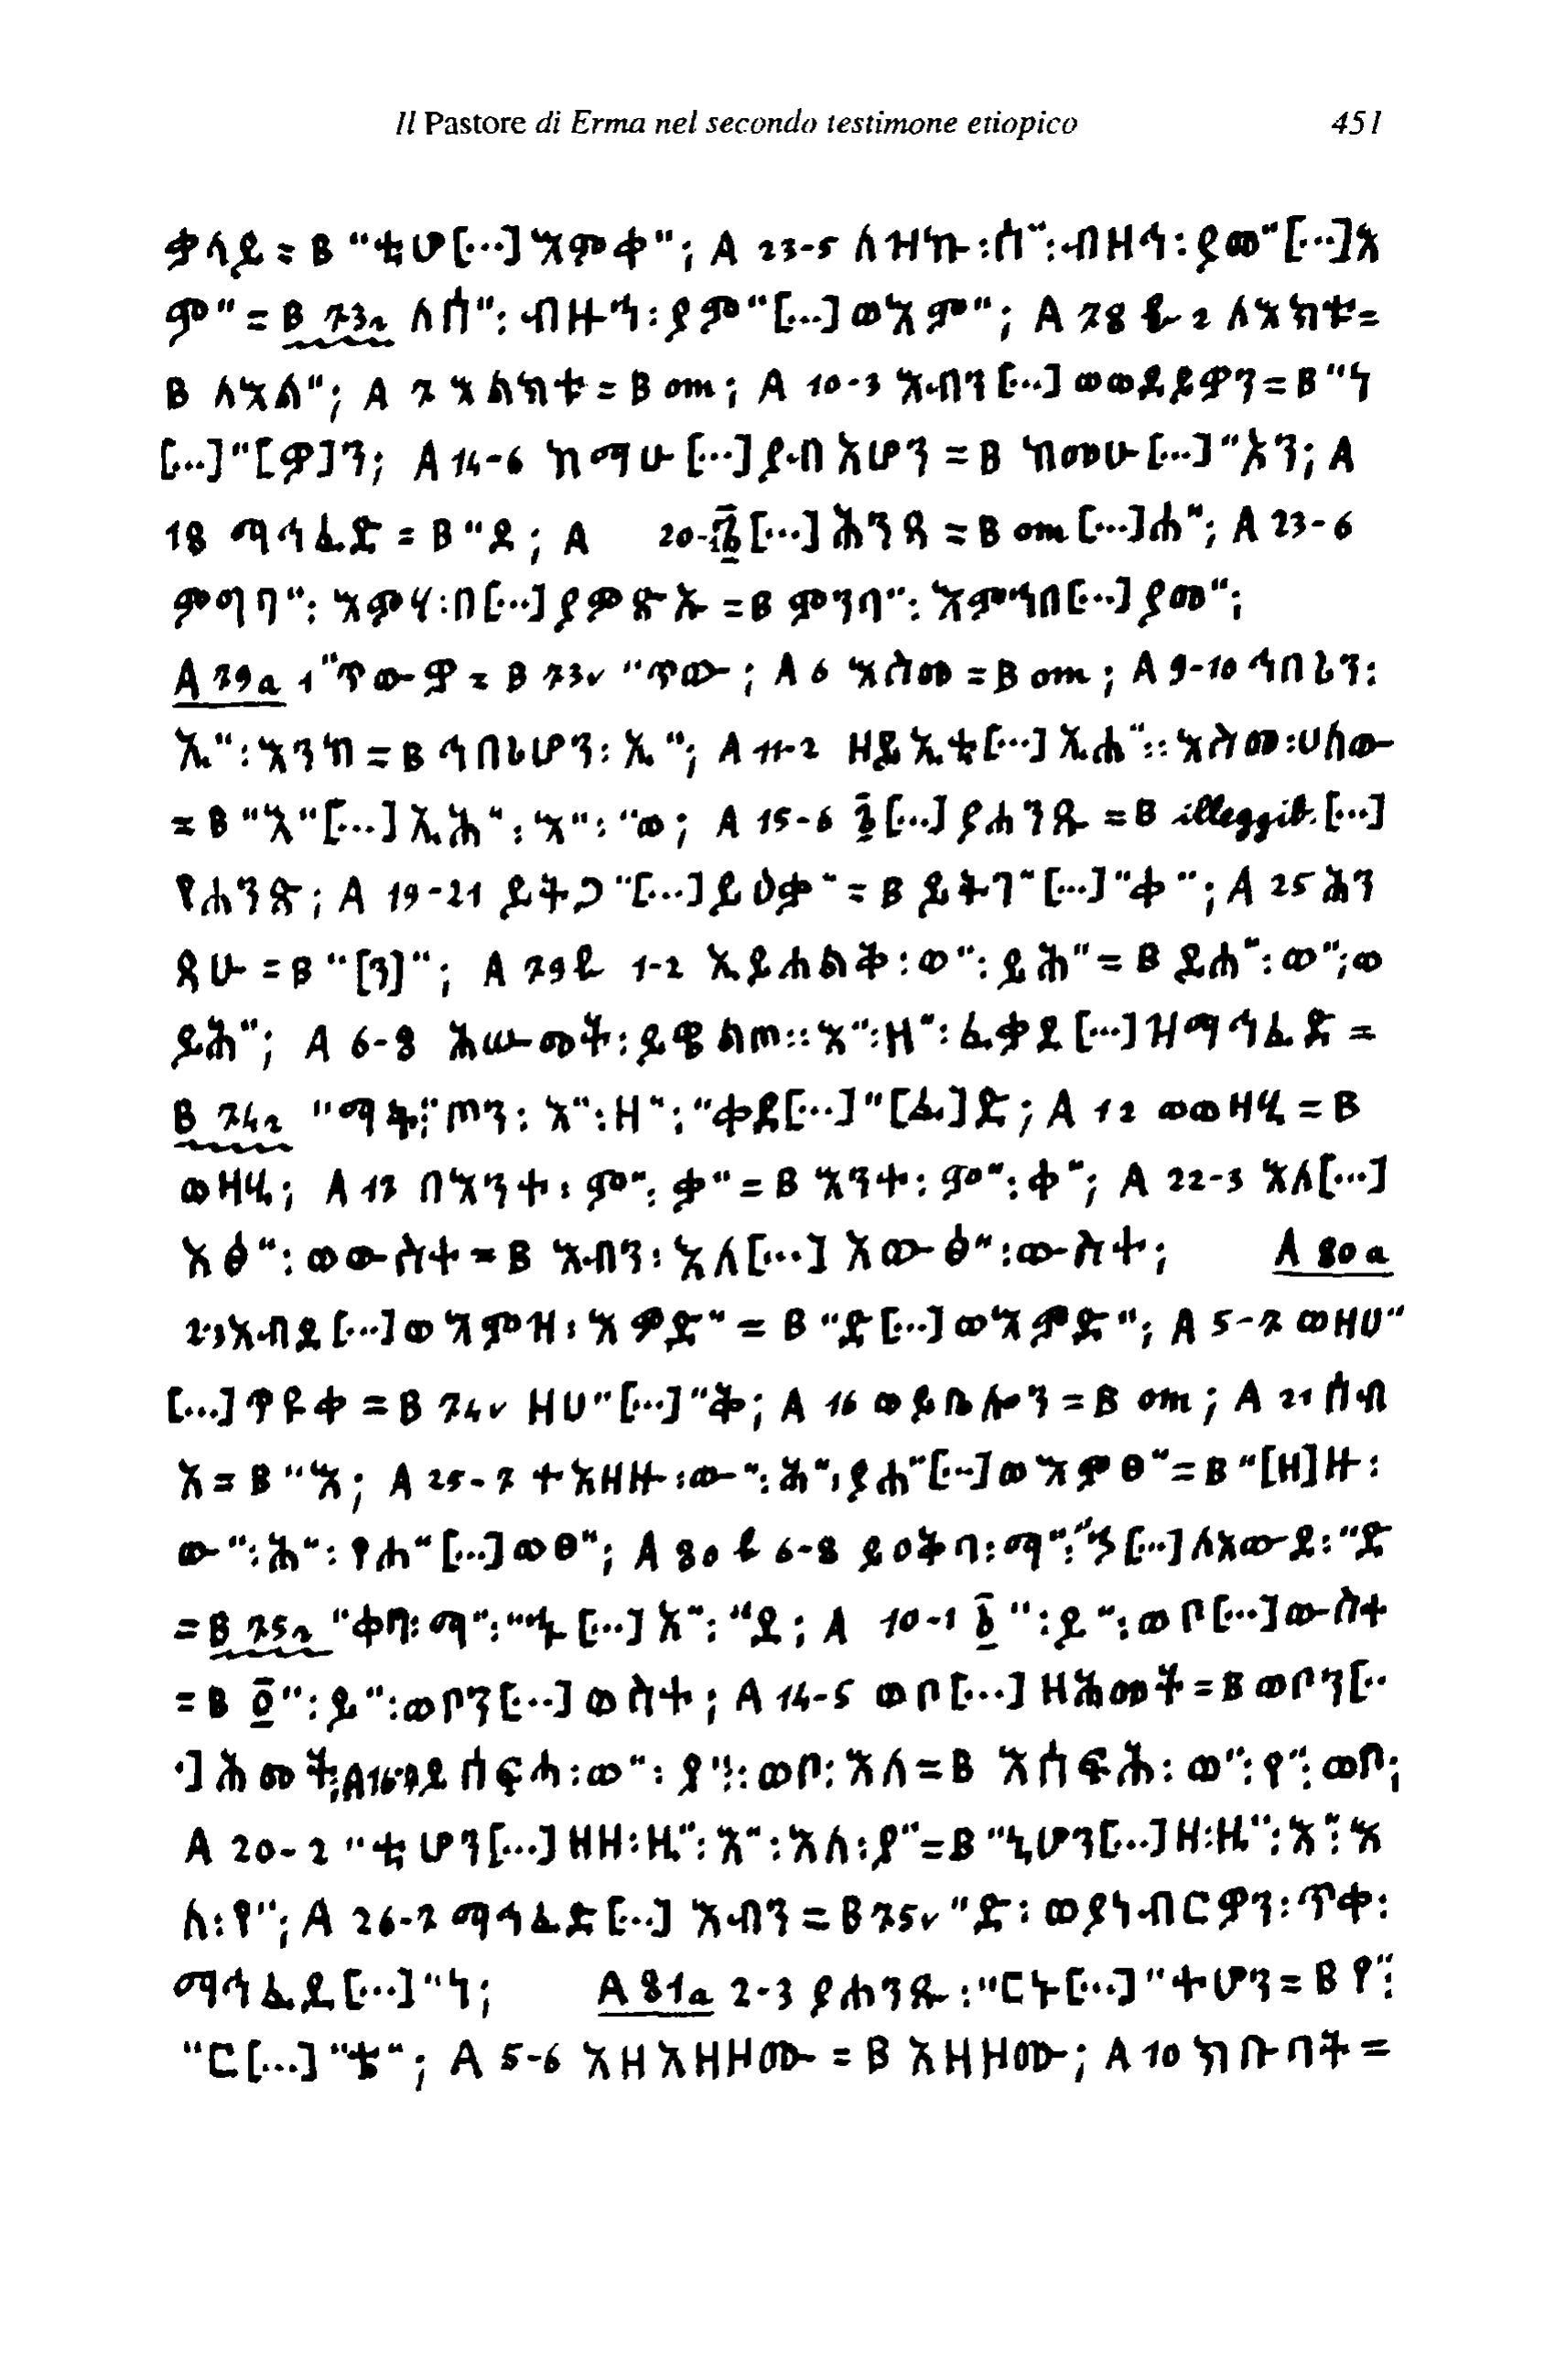 Il Pastore di Erma nel secondo testimone etiopico 451
ቃላይ = B "ቲሆ[...]እምቀ"; A 23-5 ለዝኩ:ሰ":ብዘኅ:ይመ"[...]እ
ም" = B 73r ለሰ": ብዙኅ:ይም"[...] ወእም"; A 78 b 2 ለእክቱ=
B ለእል"; A 7 እልክቱ = B om; A 10-3 እብን [...] ወወደይዎን = B "ነ
[...]"[ዎ]ን; A 14-6 ከማሁ [...] ይብእዎን = B ከመሁ [...]"እን; A
18 ማኅፈድ = B "ደ; A 20- [...] ሕንፃ = B om [...]ሐ"; A 23-6
ምግባ": እምኀ:በ[...] ይምጽኡ = B ምንባ": እምኀበ[...] ይመ";
A 79a 1 "ጥውዎ = B 73v "ጥው; A 6 እስመ = B om; A 9-10 ኅበሬን:
ኢ": እንከ = B ኅበሬሆን: ኢ"; A 11-2 ዘይኢቲ[...] ኢሐ":: እስመ:ሀለው
= B "እ"[...] ኢሕ": እ": "ወ; A 15-6 [...] ይሐንጹ = B illeggib. [...]
የሐንጽ; A 19-21 ይትጋ"[...]ይዕቃ" = B ይትገ"[...]"ቀ"; A 25 ሕን
ፃሁ = B "[ን]"; A 79b 1-2 ኢይሐልቅ: ወ": ይሕ" = B ይሐ": ወ"; ወ
ይሕ"; A 6-8 ሕፀመት: ይዌልጠ:: እ":ዘ": ፈቃደ [...] ዝማኅፈድ =
B 74r "ማት;"ጠን: እ":ዘ": "ቀደ[...]"[ፈ]ድ; A 12 ወወዘዒ = B
ወዘዒ; A 17 በእንተ: ም": ቃ" = B እንተ: ም": ቀ"; A 22-3 እለ[...]
አፅ": ወውስተ = B እብን: እለ[...] አውፅ": ውስተ; A 80a
2-3 እብደ [...] ወእምዝ: እምድ" = B "ድ [...] ወእምድ"; A 5-7 ወዘሀ"
[...] ጥይቀ = B 74v ዘሀ"[...]"ቅ; A 16 ወይቤሎን = B om; A 21 ሰብ
አ = B "እ; A 25-7 ተአዘዙ: ው": ሕ": ይሐ"[...] ወእምፀ" = B "[ዘ]ዙ:
ው": ሕ": የሐ"[...] ወፀ"; A 80 b 6-8 ይዐቅብ: ማ": [...] ለአውደ: "ድ
= B 75r "ቀብ: ማ": [...] አ": "ደ; A 10-1 ": ይ": ወቦ[...] ውስተ
= B ": ይ": ወቦን[...] ወስተ; A 14-5 ወቦ[...] ዘሕመት = B ወቦን[..
.] ሕመት; A 16- ሰፍሐ: ወ": ይ": ወቦ: እለ = B አሰፍሕ: ወ": የ": ወቦ;
A 20-2 "ቲሆን [...] ዘዘ:ዚ": እ": እለ: ይ" = B "ኒሆን[...] ዘ:ዚ": እ": እ
ለ: የ"; A 26-7 ማኅፈድ [...] እብን = B 75v "ድ: ወይነብርዎን: ጥቀ:
ማኅፈደ [...]"ነ; A 81a 2-3 ይሐንጹ: "ርት[...]"ተሆን = B የ":
"ር [...] "ቲ"; A 5-6 አዘአዘዘሙ = B አዘዘሙ; A 10 ክቡባት =